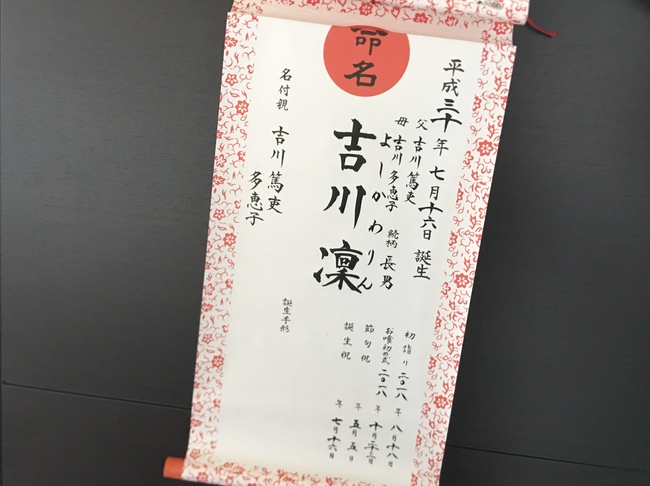 命名
平成三十年 七月十六日 誕生
父 吉川 篤吏
母 吉川 多恵子 続柄 長男
よしかわりん
吉川 凛
名付親 吉川 篤吏
多恵子
初詣り 二〇一八年 八月十八日
お喰初め式 二〇一八年 十月二十三日
節句祝 年 五月五日
誕生祝 年 七月十六日
誕生手形